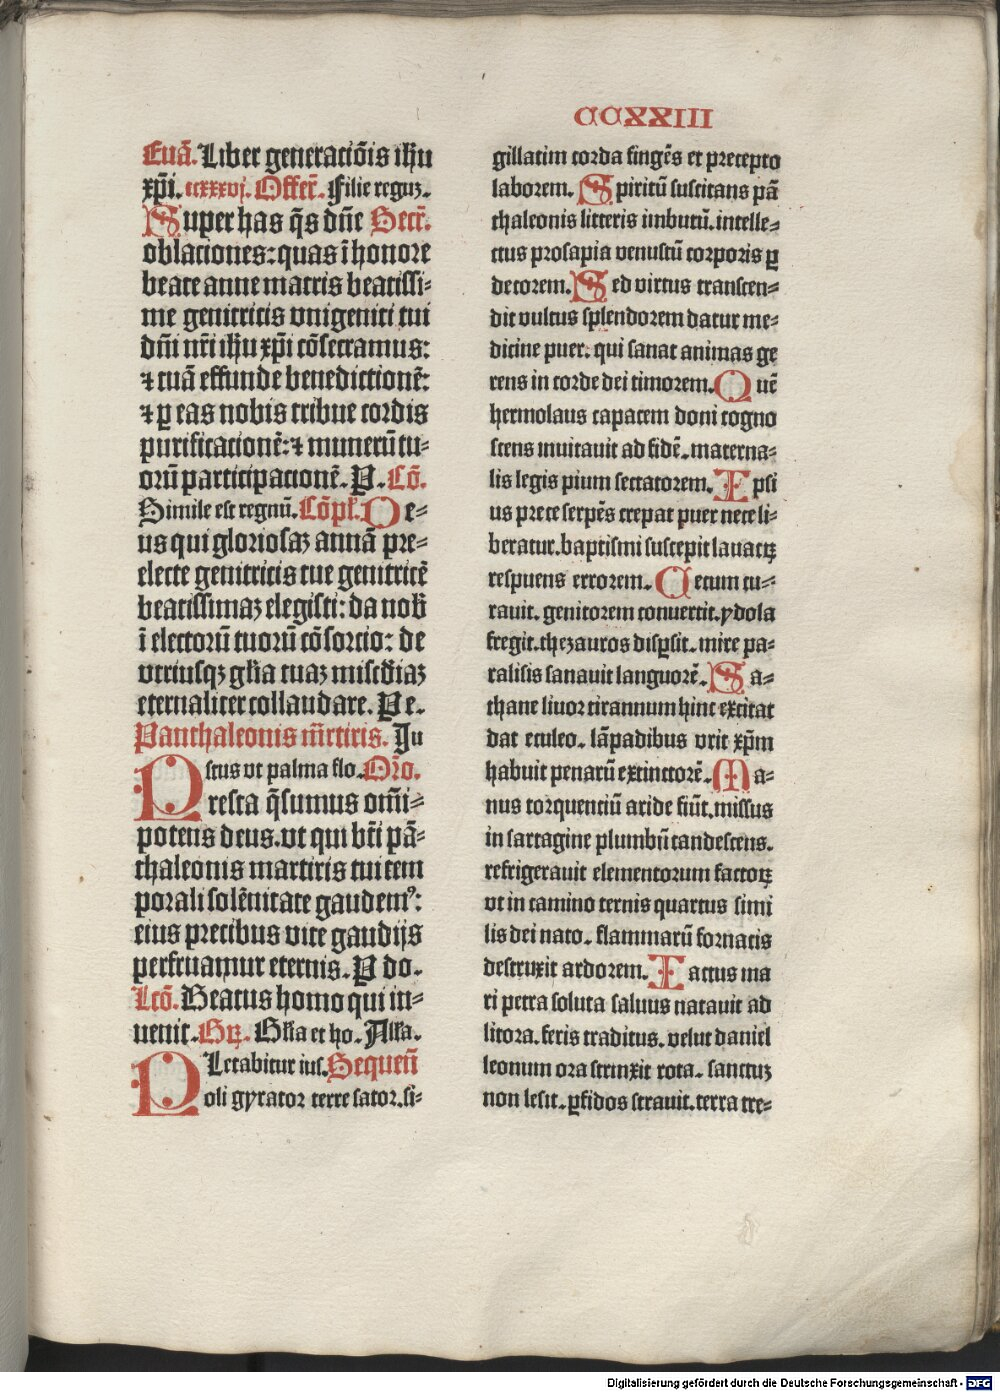 CCXXIII
Euā. Liber generatiōis ihu
xp̄i. ccxxxvj. Offer̄. Filie reguꝫ.
Super has q̄s dn̄e Secr̄.
oblationes: quas ī honore
beate anne matris beatissi-
me genitricis vnigeniti tui
dn̄i nr̄i ihu xp̄i cōsecramus:
⁊ tuā effunde benedictionē:
⁊ ꝑ eas nobis tribue cordis
purificationē: ⁊ munerū tu-
orū participationē. P. Cō.
Simile est regnū. Cōpl. De-
us qui gloriosaꝫ annā pre-
electe genitricis tue genitricē
beatissimaꝫ elegisti: da nob
ī electorū tuorū cōsortio: de
vtriusqꝫ glīa tuaꝫ miscdiaꝫ
eternaliter collaudare. Pe.
Panthaleonis m̄rtiris. Iu
stus vt palma flo. Or̄o.
Presta q̄sumus om̄i-
potens deus. vt qui bt̄i pā-
thaleonis martiris tui tem
porali solēnitate gaudemꝰ:
eius precibus vite gaudijs
perfruamur eternis. P do.
Lcō. Beatus homo qui in-
uenit. Gꝝ. Glīa et ho. Alla.
Letabitur ius. Sequen̄
Poli gyrator terre sator. si-
gillatim corda fingēs et precepto
laborem. Spiritū suscitans pā
thaleonis litteris imbutū. intelle-
ctus prosapia venustū corporis ꝑ
decorem. Sed virtus transcen-
dit vultus splendorem datur me-
dicine puer. qui sanat animas ge
rens in corde dei timorem. Quē
hermolaus capacem doni cogno
scens inuitauit ad fidē. materna-
lis legis pium sectatorem. Ipsi
us prece serpēs crepat puer nece li-
beratur. baptismi suscepit lauacꝝ
respuens errorem. Cecum cu-
rauit. genitorem conuertit. ydola
fregit. thezauros disꝑsit. mire pa-
ralisis sanauit languorē. Sa-
thane liuor tirannum hinc excitat
dat eculeo. lāpadibus vrit xp̄m
habuit penarū extinctorē. Ma-
nus torquentiū aride fiūt. missus
in sartagine plumbū candescens.
refrigerauit elementorum factoꝝ
vt in camino ternis quartus simi
lis dei nato. flammarū fornacis
destruxit ardorem. Iactus ma
ri petra soluta saluus natauit ad
litora. feris traditus. velut daniel
leonum ora strinxit rota. sanctuꝫ
non lesit. ꝑfidos strauit. terra tre-
Digitalisierung gefördert durch die Deutsche Forschungsgemeinschaft - DFG